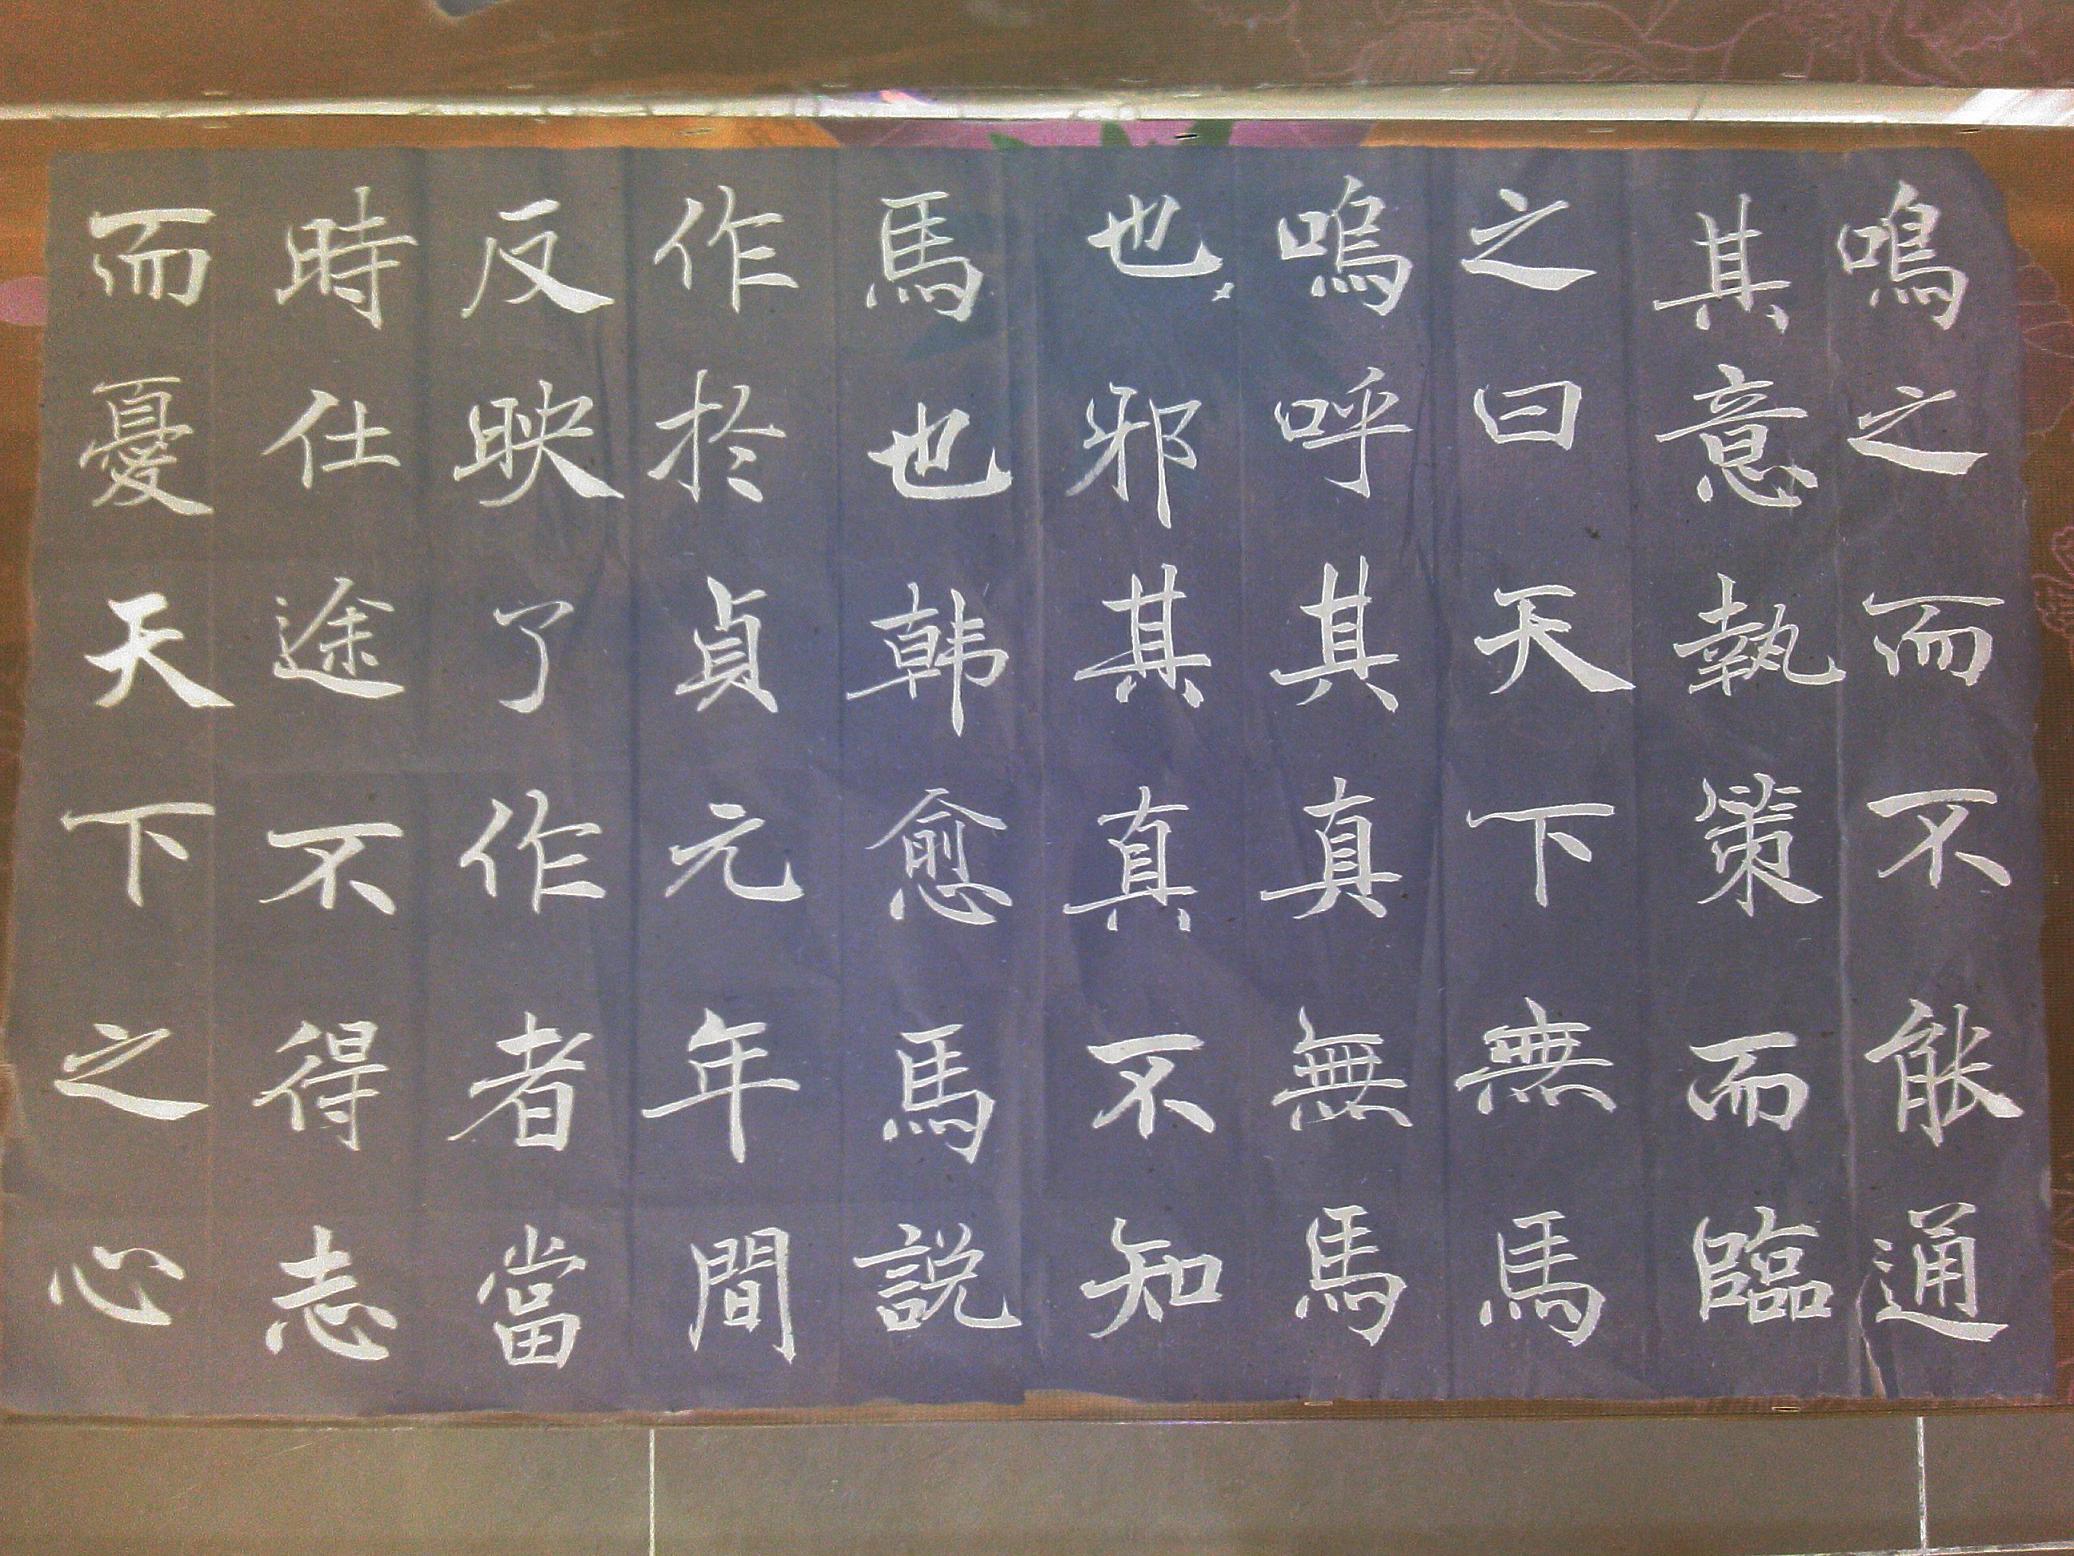 鳴之而不能通
其意執策而臨
之曰天下無馬
嗚呼其真無馬
也邪其真不知
馬也韩愈馬説
作於貞元年間
反映了作者當
時仕途不得志
而憂天下之心